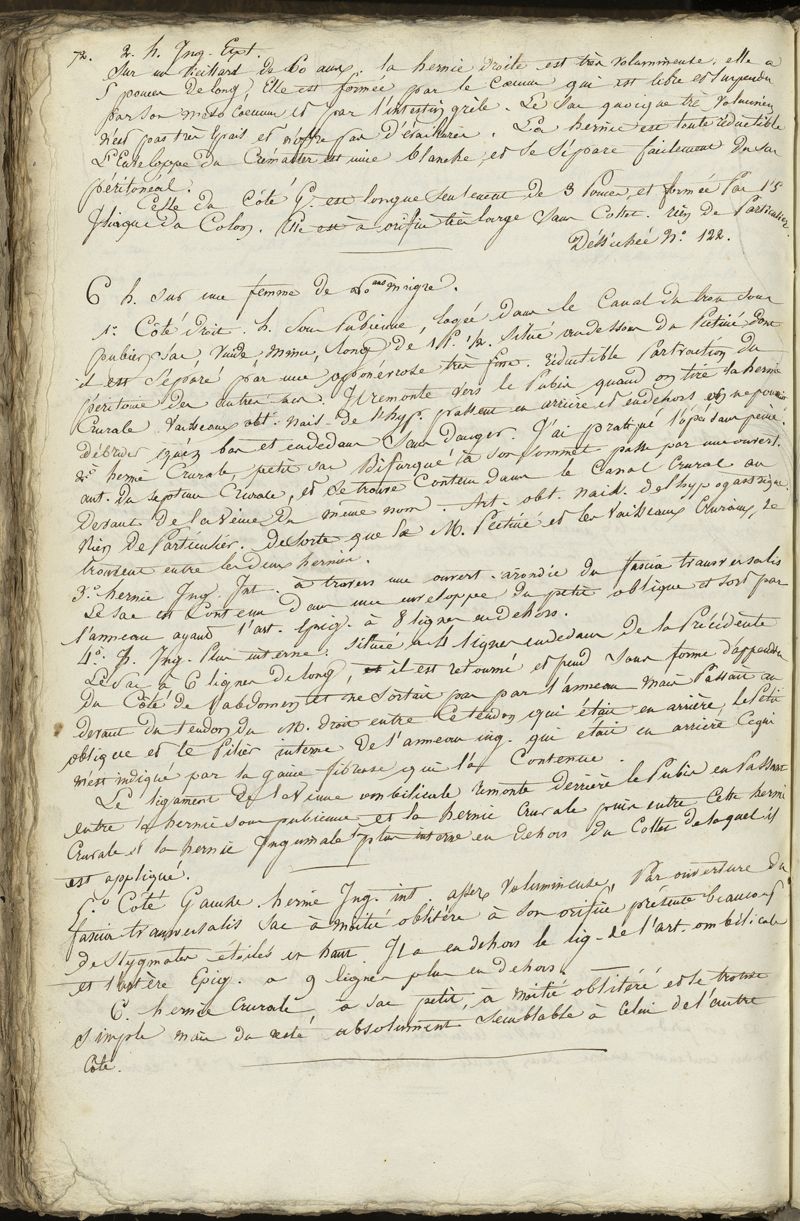 72. 2. h. Ing. Ext.
Sur un vieillard de 60 ans, la hernie droite est très volumineuse, elle a
5 pouces de long; Elle est formée par le Cœcum qui est libre et suspendu
par son meso Cœcum et par l'intestin grêle. Le Sac quoique très volumineux
n'est pas très épais et n'offre pas d'éraillures. La hernie est toute réductible
L'Enveloppe du Crémaster est mince blanche, et se sépare facilement du sac
péritonéal.
Celle du Côté G. est longue seulement de 3 Pouces, et formée Par l'S
Iliaque du Colon. Elle est à orifice très large Sans Collet. rien de Particulier
Desséchée N.º 122.
6 h. Sur une femme de ans maigre.
1.º Côté droit. h. Sous Pubienne, logée dans le Canal du trou sous
pubien, sac vuide, mince, long de 1 P. 1/2. Situé au dessous du Pectiné dont
il est Séparé par une aponévrose très fine. réductible Par traction du
Péritoine du autre sac. Il remonte vers le Pubis quand on tire la hernie
Crurale. Vaisseaux obt. nais. de l'hyp. passent en arrière et en dehors on ne pourrait
débrider qu'en bas et en dedans Sans danger. J'ai pratiqué l'opér. sans peine.
2.º hernie Crurale petit sac Bifurqué à son sommet passe par une ouvert.
ant. du septum Crurale, et se trouve Contenu dans le Canal Crural au
devant de la Veine du même nom. Art. obt. naiss. de l'hypogastrique.
Rien de Particulier. de sorte que le M. Pectiné et les Vaisseaux Cruraux, se
trouvent entre les deux hernies.
3.º hernie Ing. Int. à travers une ouvert. arondie du fascia transversalis
Le sac est Contenu dans une enveloppe du petit oblique et sort par
l'anneau ayant l'art. Epig. à 8 lignes en dehors.
4.º h. Ing. Plus interne. située à 4 lignes en dedans de la Précédente
Le Sac a 6 lignes de long, il est retourné et pend Sous forme d'appendice
du Côté de l'abdomen et ne Sortait pas par l'anneau mais Passait au
devant du tendon du M. droit entre ce tendon qui était en arrière, le Petit
oblique et le Pilier interne de l'anneau ing. qui était en arrière Ce qui
m'est indiqué par la gaine fibreuse qui l'a Contenue.
Le ligament de la Veine ombilicale remonte derrière le Pubis en Passant
entre la hernie sous pubienne et la hernie Crurale puis entre Cette hernie
Crurale et la hernie Inguinale plus interne en dehors du Collet de laquelle il
est appliqué.
5.º Côté Gauche hernie Ing. int. assez Volumineuse, Par ouverture du
fascia transversalis Sac à moitié oblitéré à Son orifice, présente beaucoup
de Stygmates étoilés en haut Il a en dehors le lig. de l'art. ombilicale
et l'artère Epig. à 9 lignes plus en dehors.
6. hernie Crurale, a sac petit, à moitié oblitéré et se trouve
simple mais du reste absolument Semblable à Celui de l'autre
Côté.